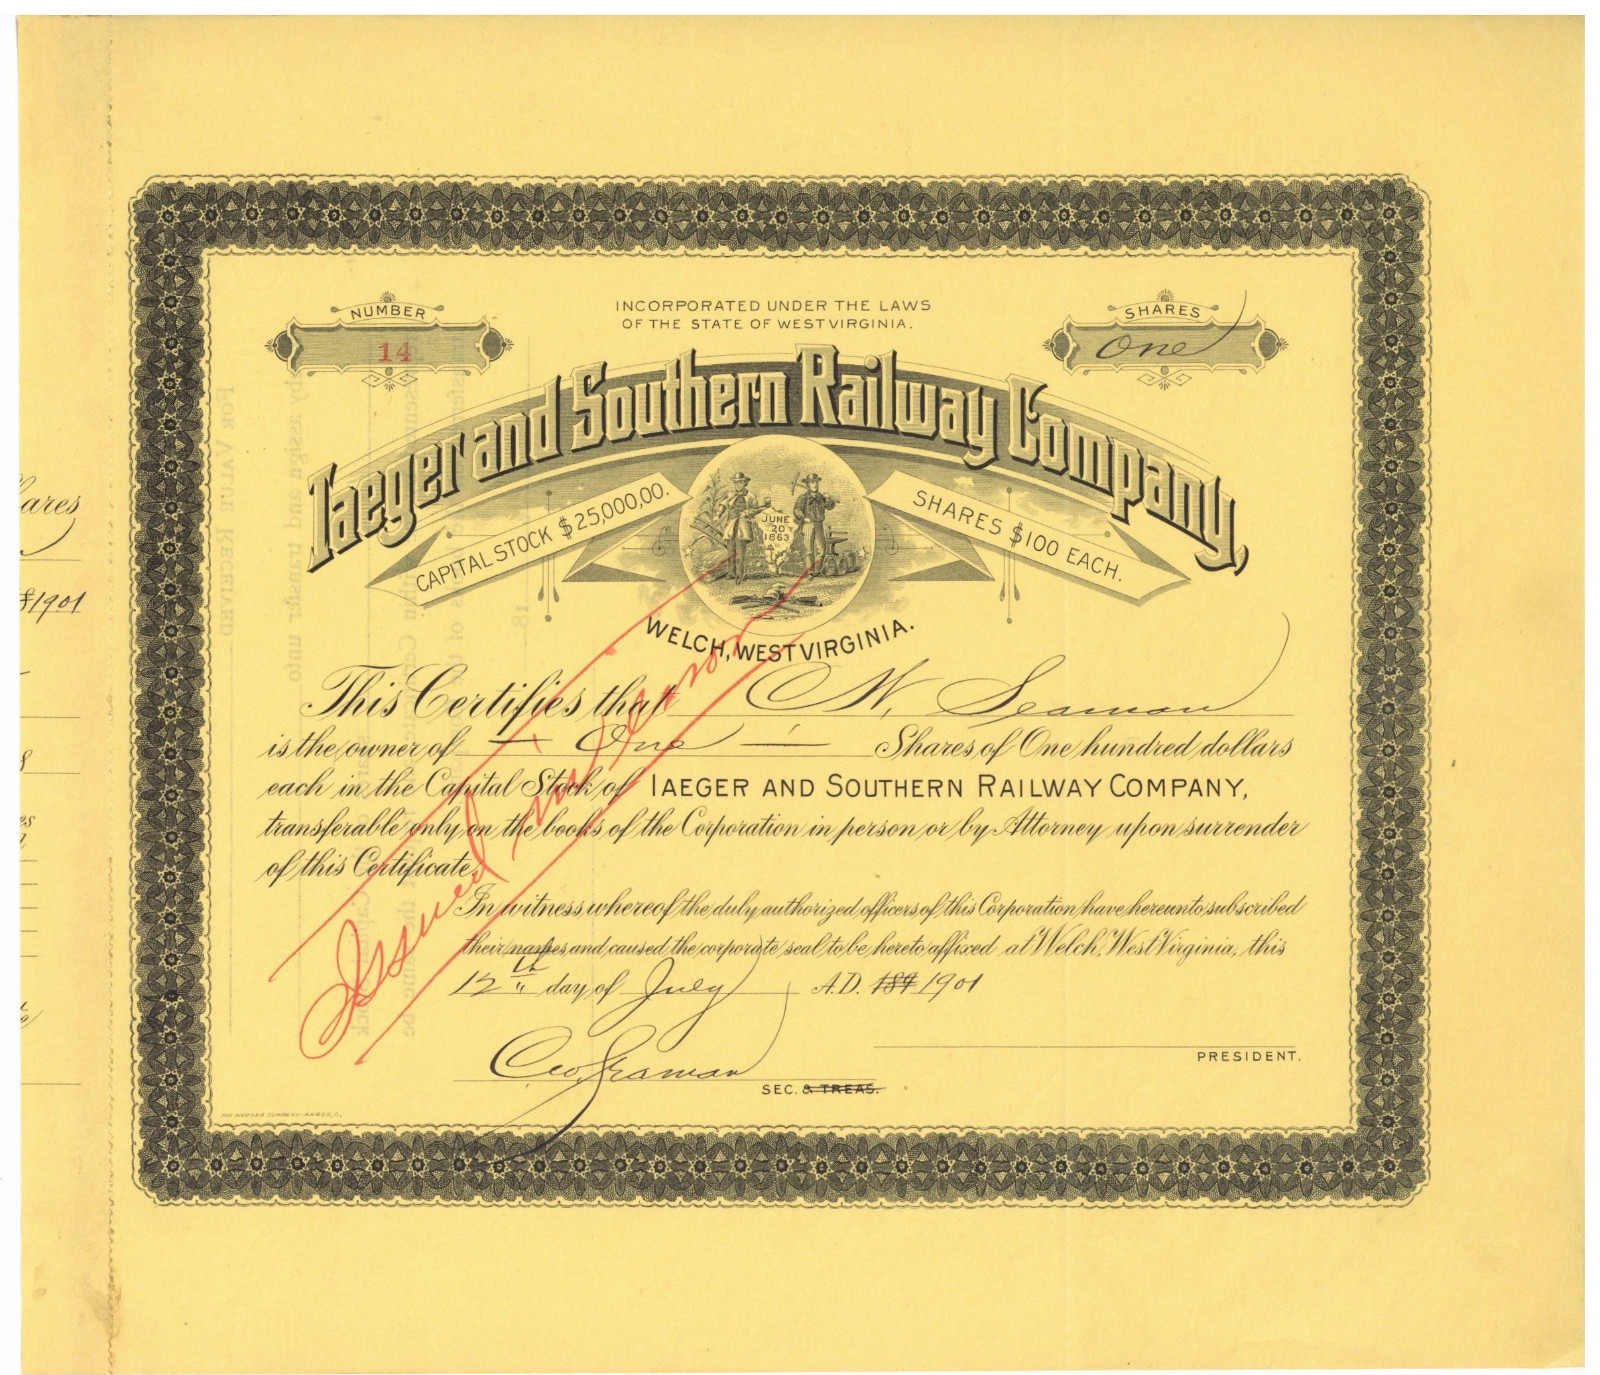 NUMBER
14
INCORPORATED UNDER THE LAWS
OF THE STATE OF WEST VIRGINIA.
SHARES
One
Iaeger and Southern Railway Company,
CAPITAL STOCK $25,000,00.
JUNE
20
1863
SHARES $100 EACH.
WELCH, WEST VIRGINIA.
This Certifies that C W. Seaman
is the owner of — One — Shares of One hundred dollars
each in the Capital Stock of IAEGER AND SOUTHERN RAILWAY COMPANY,
transferable only on the books of the Corporation in person or by Attorney upon surrender
of this Certificate.
In witness whereof the duly authorized officers of this Corporation have hereunto subscribed
their names and caused the corporate seal to be hereto affixed at Welch, West Virginia, this
12th day of July A.D. 189 1901
Geo, Seaman
PRESIDENT.
SEC. & TREAS.
Issued in error
ares
1901
FOR VALUE RECEIVED
by assign and transfer unto